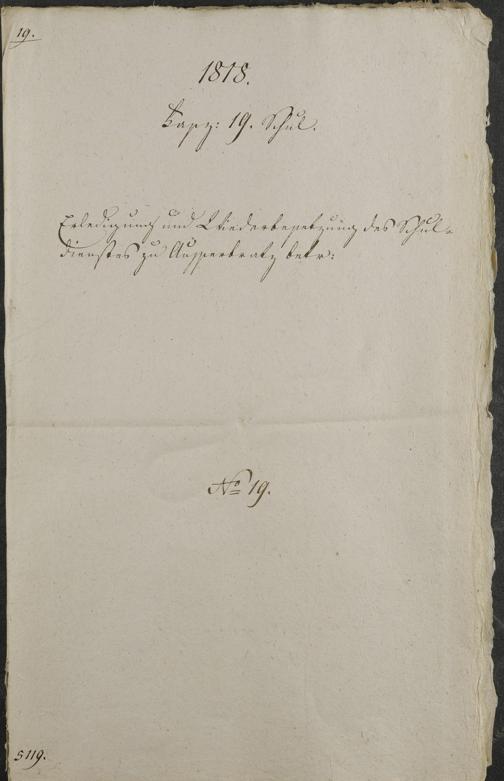 19.
1818.
Fasz: 19. Schul.
Erledigung und Wiederbesetzung des Schul-
dienstes zu Ausserbratz betr:
No 19.
5119.